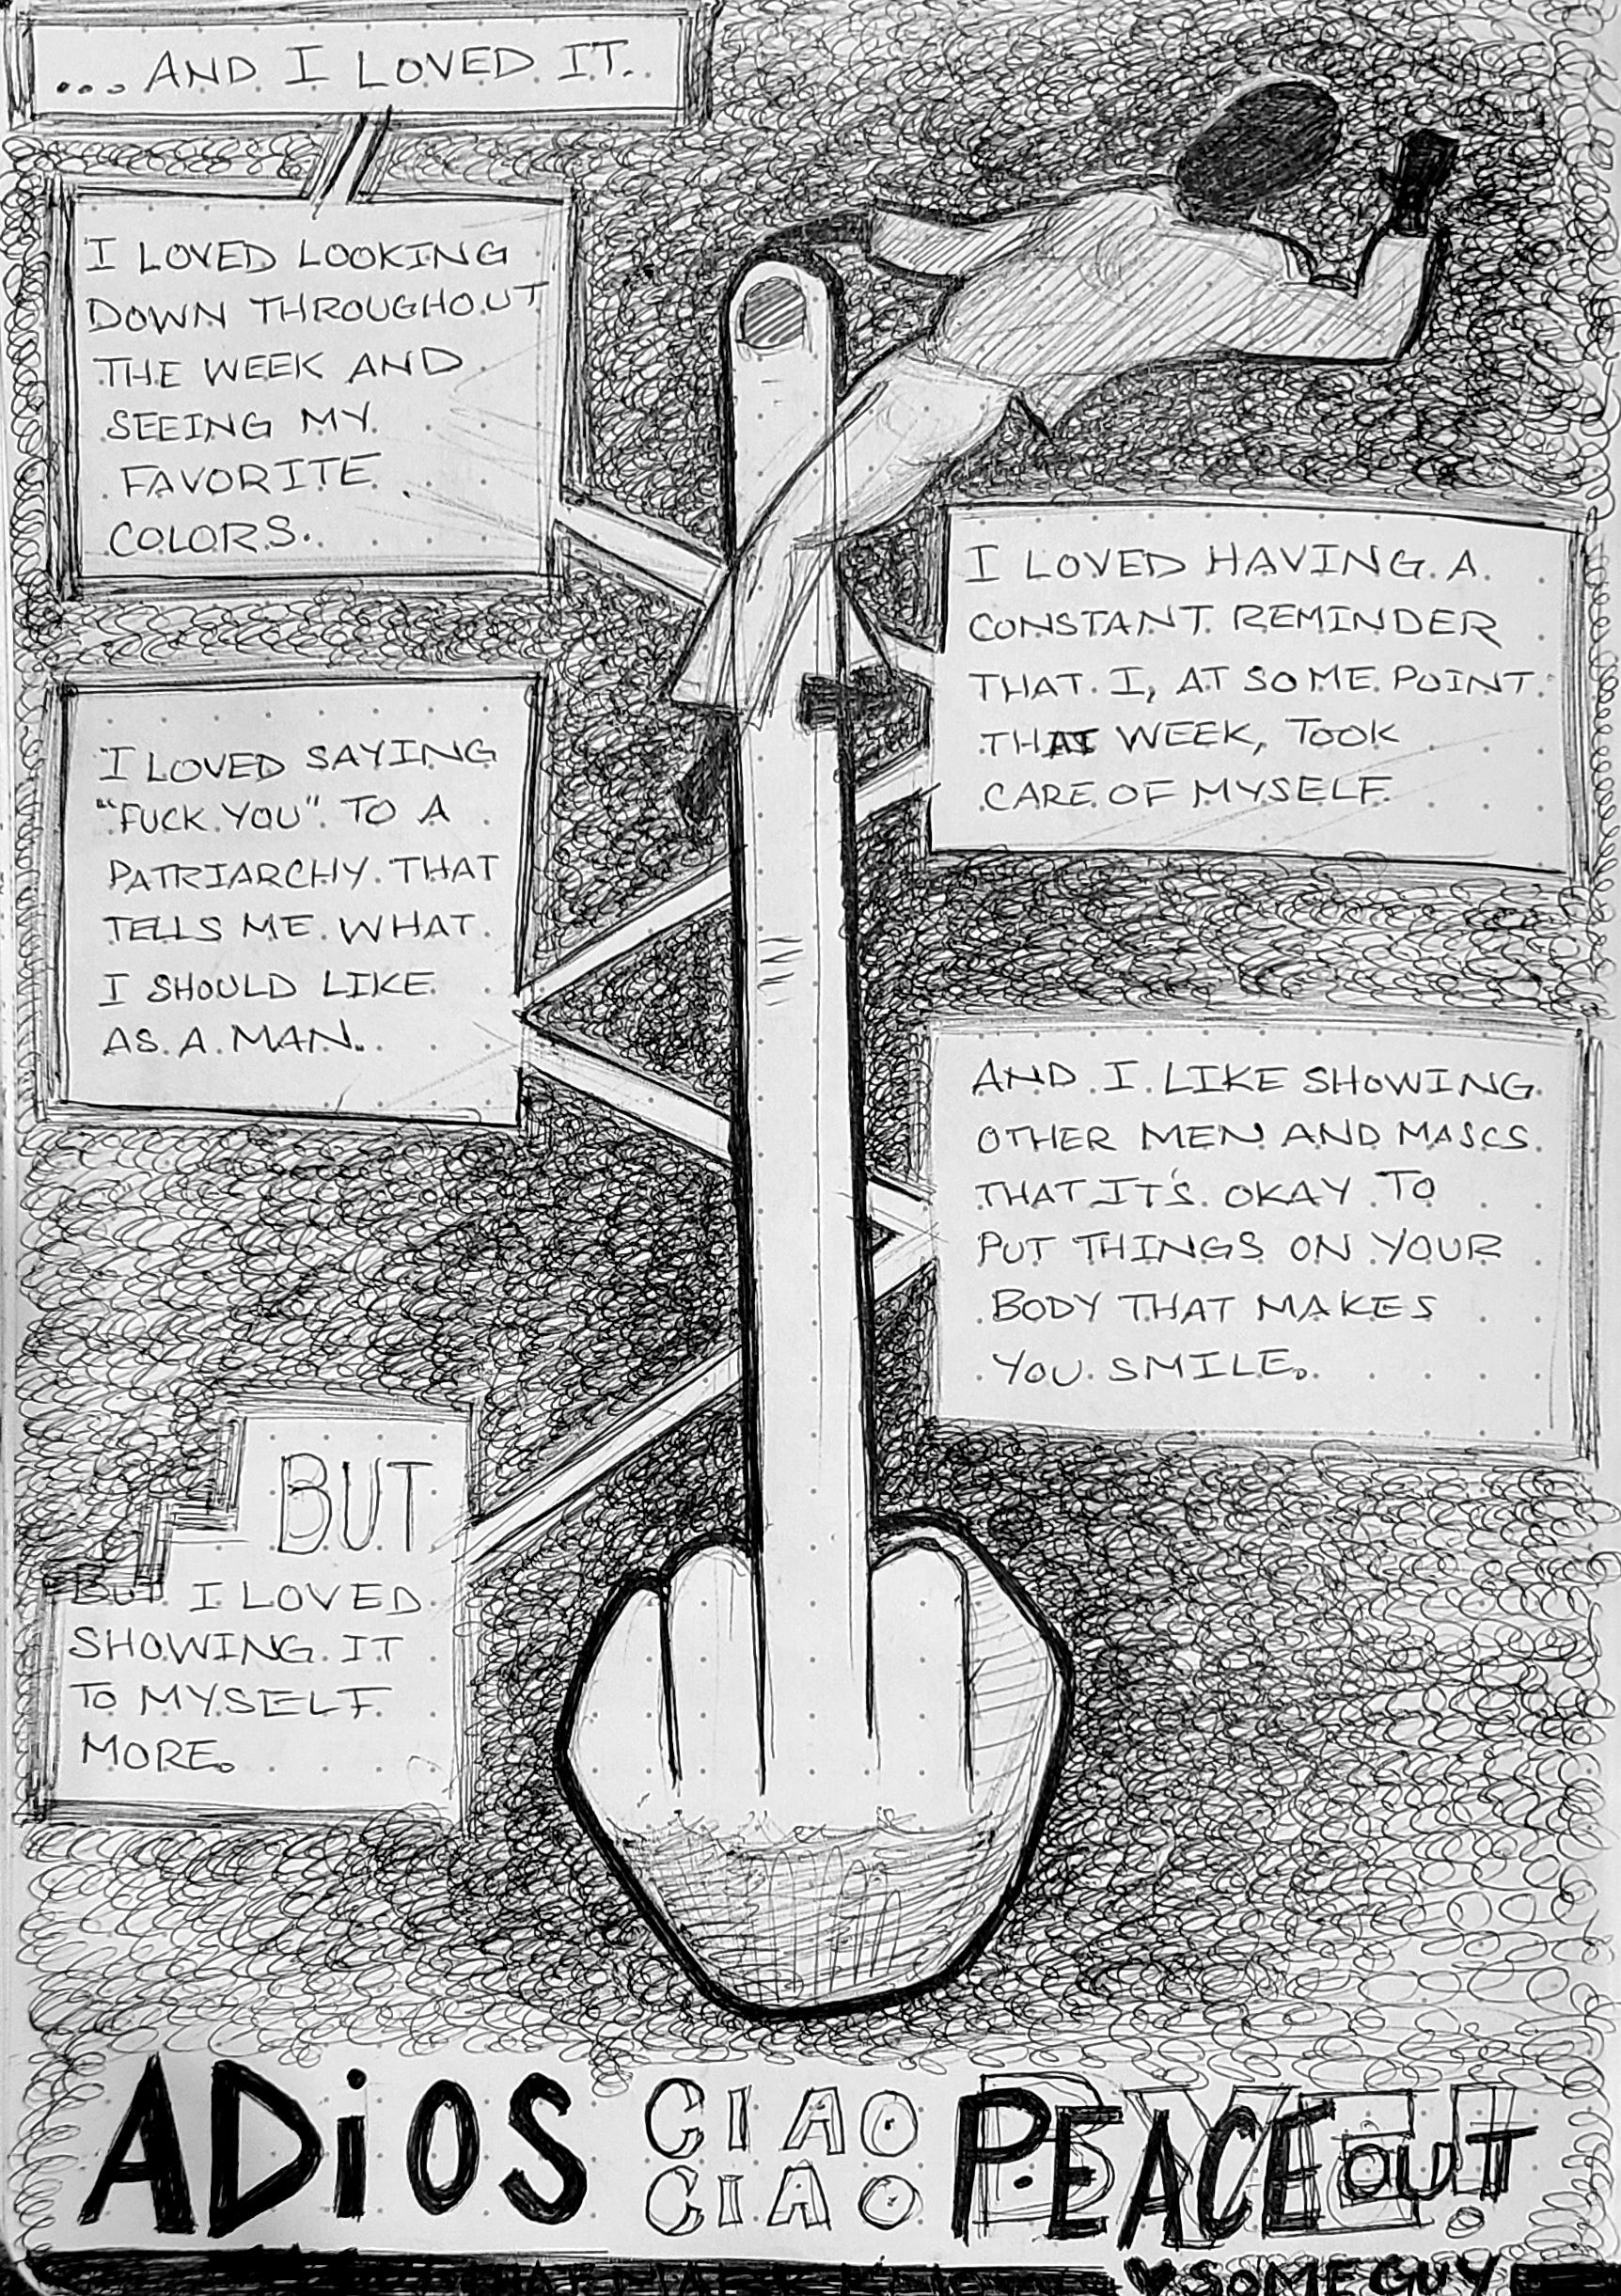 ... AND I LOVED IT.
I LOVED LOOKING
DOWN THROUGHOUT
THE WEEK AND
SEEING MY
FAVORITE
COLORS.
I LOVED HAVING A
CONSTANT REMINDER
THAT I, AT SOME POINT
THAT WEEK, TOOK
CARE OF MYSELF
I LOVED SAYING
"FUCK YOU" TO A
PATRIARCHY THAT
TELLS ME WHAT
I SHOULD LIKE
AS A MAN.
AND I LIKE SHOWING
OTHER MEN AND MASCS
THAT IT'S OKAY TO
PUT THINGS ON YOUR
BODY THAT MAKES
YOU SMILE.
BUT
BUT I LOVED
SHOWING IT
TO MYSELF
MORE.
ADiOS CIAO CIAO PEACE OUT
BYE!
♥SOMEGUY